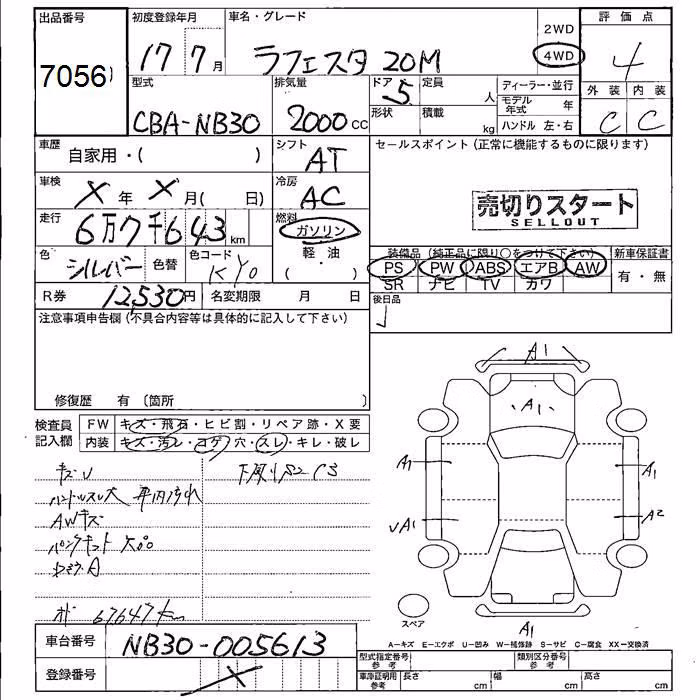 出品番号
7056
初度登録年月
17 7月
車名・グレード
ラフェスタ 20M
2WD
4WD
評価点
4
型式
CBA-NB30
排気量
2000cc
ドア 5
形状
定員 人
積載 kg
ディーラー・並行
モデル年式 年
ハンドル 左・右
外装 内装
C C
車歴
自家用・( )
シフト
AT
車検
X年 X月( 日)
冷房
AC
走行
6万7千643km
燃料
ガソリン
軽・油
( )
色 シルバー 色替
色コード KY0
R券 12,530円
名変期限 月 日
セールスポイント(正常に機能するものに限ります)
売切りスタート
SELLOUT
装備品(純正品に限り○をつけて下さい)
PS PW ABS エアB AW
SR ナビ TV カワ
新車保証書
有・無
後日品
注意事項申告欄(不具合内容等は具体的に記入して下さい)
修復歴 有(箇所 )
検査員記入欄
FW キズ・飛石・ヒビ割・リペア跡・X要
内装 キズ・汚レ・コゲ穴・スレ・キレ・破レ
キズU
ハンドルスレ大
AWキズ
パンクキット
下廻りS2 C3
67647km
A1
A1
A1
A1
UA1
A2
スペア
A1
A=キズ E=エクボ U=凹み W=補修跡 S=サビ C=腐食 XX=交換済
車台番号
NB30-005613
登録番号
X
型式指定番号 参考
類別区分番号 参考
車庫証明用 参考
長さ cm 幅 cm 高さ cm